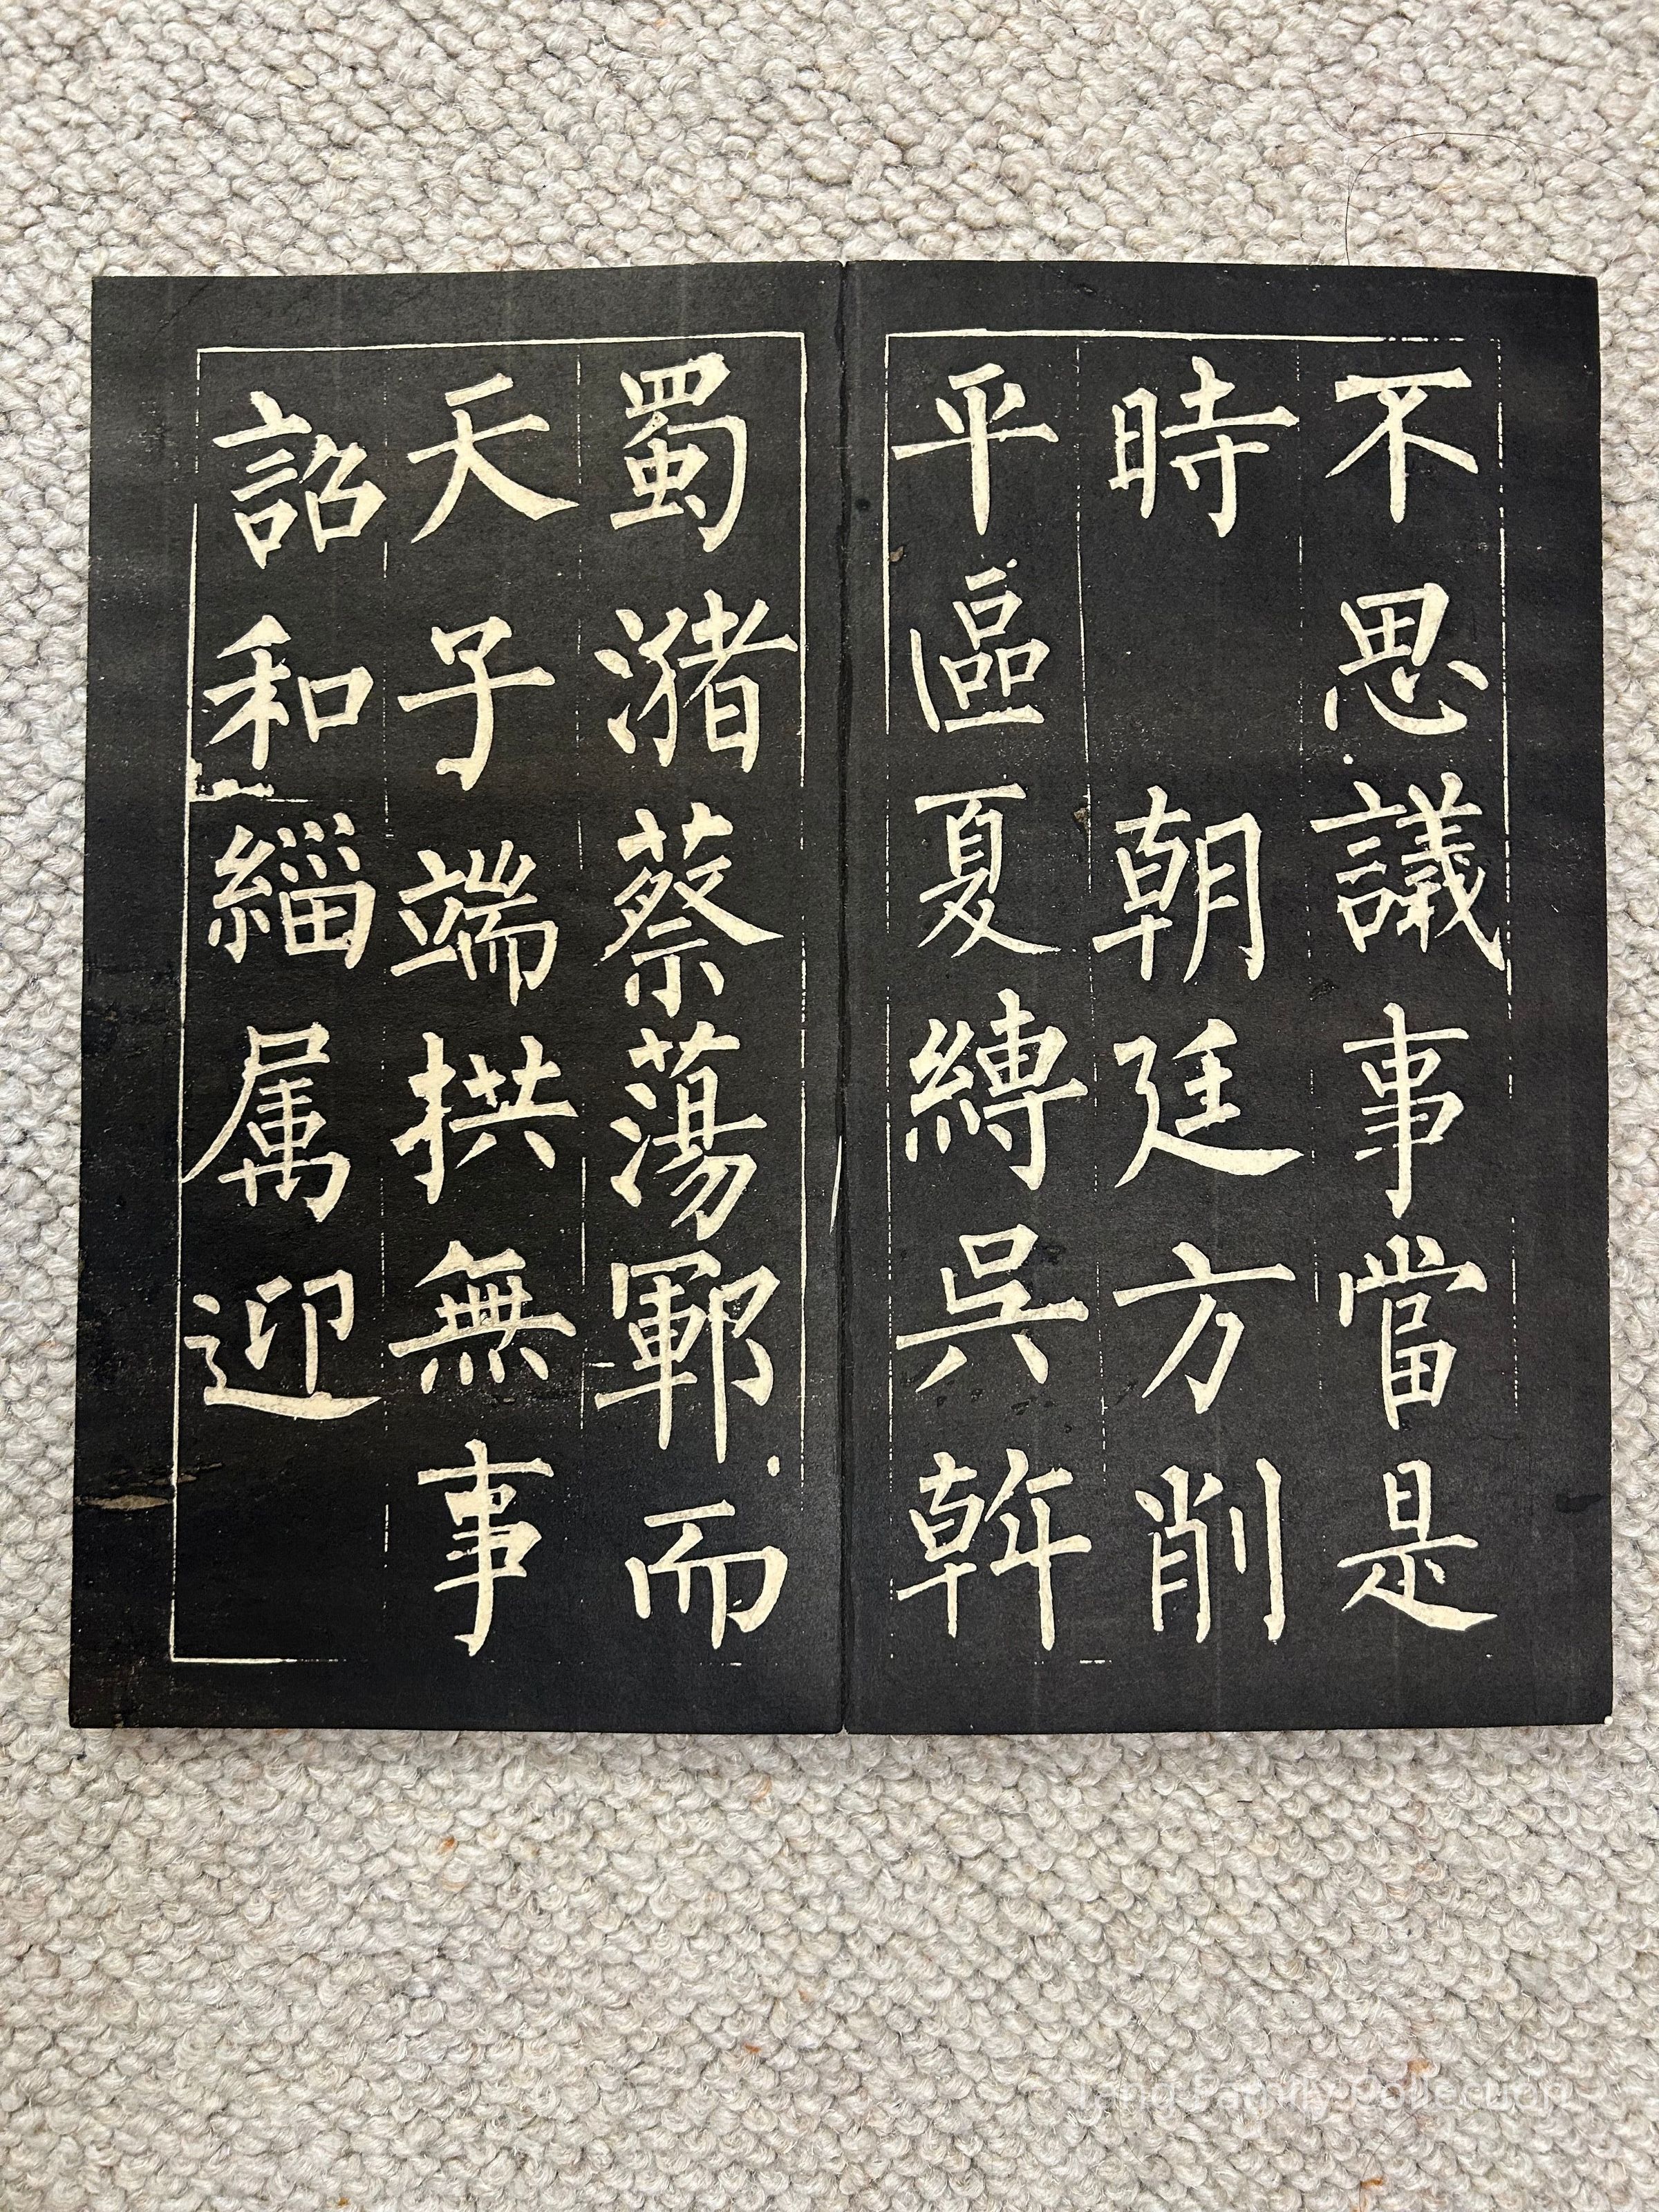 不思議事當是
時　朝廷方削
平區夏縛吳斡
蜀瀦蔡蕩鄆而
天子端拱無事
詔和緇属迎
Tang Family Collection